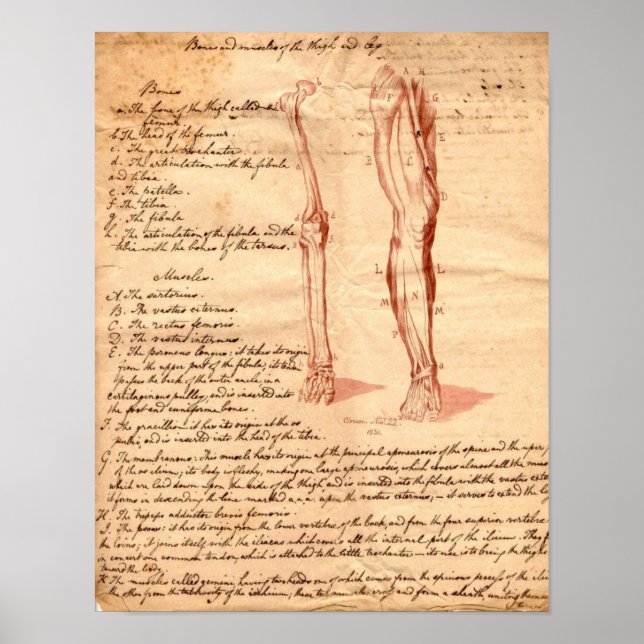 Bones and muscles of the thigh and leg
Bones
a. The bone of the thigh called the
femur.
b. The head of the femur.
c. The great trochanter
d. The articulation with the fibula
and tibia.
e. The patella
f. The tibia
g. The fibula
h. The articulation of the fibula and the
tibia with the bones of the tarsus.
Muscles.
A. The sartorius.
B. The vastus externus.
C. The rectus femoris.
D. The vastus internus.
E. The peroneus longus: it takes its origin
from the upper part of the fibula; its tend
passes the back of the outer ancle, in a
cartilaginous pulley, and is inserted into
the foot and cuniforme bones.
F. The gracillion it has its origin at the os
pubis, and is inserted into the head of the tibia.
G. The membranous: This muscle has its origin at the principal aponeurosis of the spine and the upper
of the os ilium; its body is fleshy, making one large aponeurosis, which covers almost all the mus
which are laid down upon the side of the thigh and is inserted into the fibula with the vastus exter
it forms in descending the line marked a.a.a. upon the vastus externus; — it serves to extend the le
H. The triceps adductor brevis femoris.
I. The psoas: it has its origin from the lower vertebre of the back, and from the four superior vertebre
the loins; it joins itself with the iliacus which comes all the internal part of the ilium. They
in concert one common tendon, which is attached to the little trochanter — its use is to bring the thighs
toward the body.
K. The muscles called gemini, having two heads one of which comes from the spinous process of the iliu
the other from the tuberosity of the ischium; these two muscles cross and form a sheath, uniting themse
b
a
c
d
d
e
g
h
G
A
H
F
I
G
E
B
C
D
L
L
M
N
M
P
O
1830.